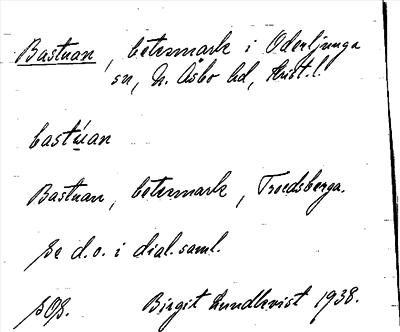 Bastuan, betesmark i Oderljunga
sn, N. Åsbo hd, Krist. l.
bastúan
Bastuan, betesmark, Troedsberga.
se d.o. i dial.saml.
Birgit Lundkvist 1938.